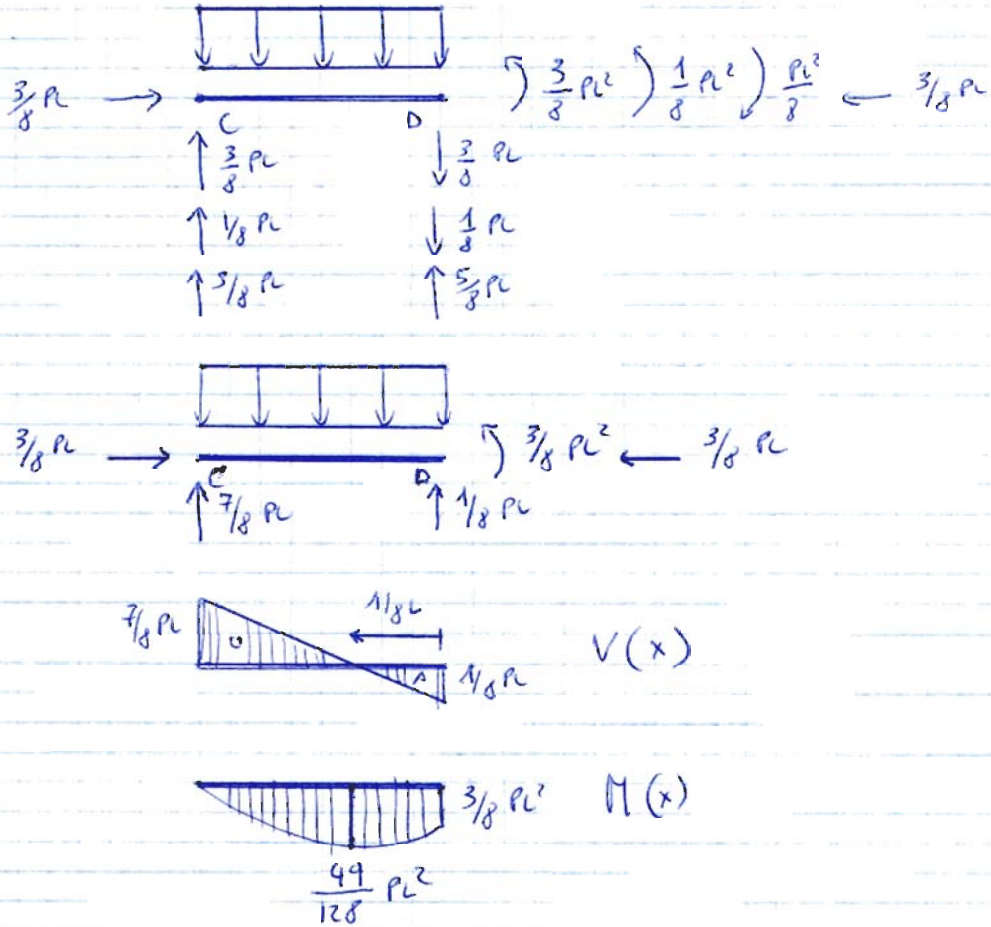 3/8 PL → C D 3/8 PL² 1/8 PL² PL²/8 ← 3/8 PL
↑ 3/8 PL ↓ 3/8 PL
↑ 1/8 PL ↓ 1/8 PL
↑ 5/8 PL ↑ 5/8 PL
3/8 PL → C D 3/8 PL² ← 3/8 PL
↑ 7/8 PL ↑ 1/8 PL
7/8 PL 1/8 L 1/8 PL V(x)
3/8 PL² M(x)
49/128 PL²